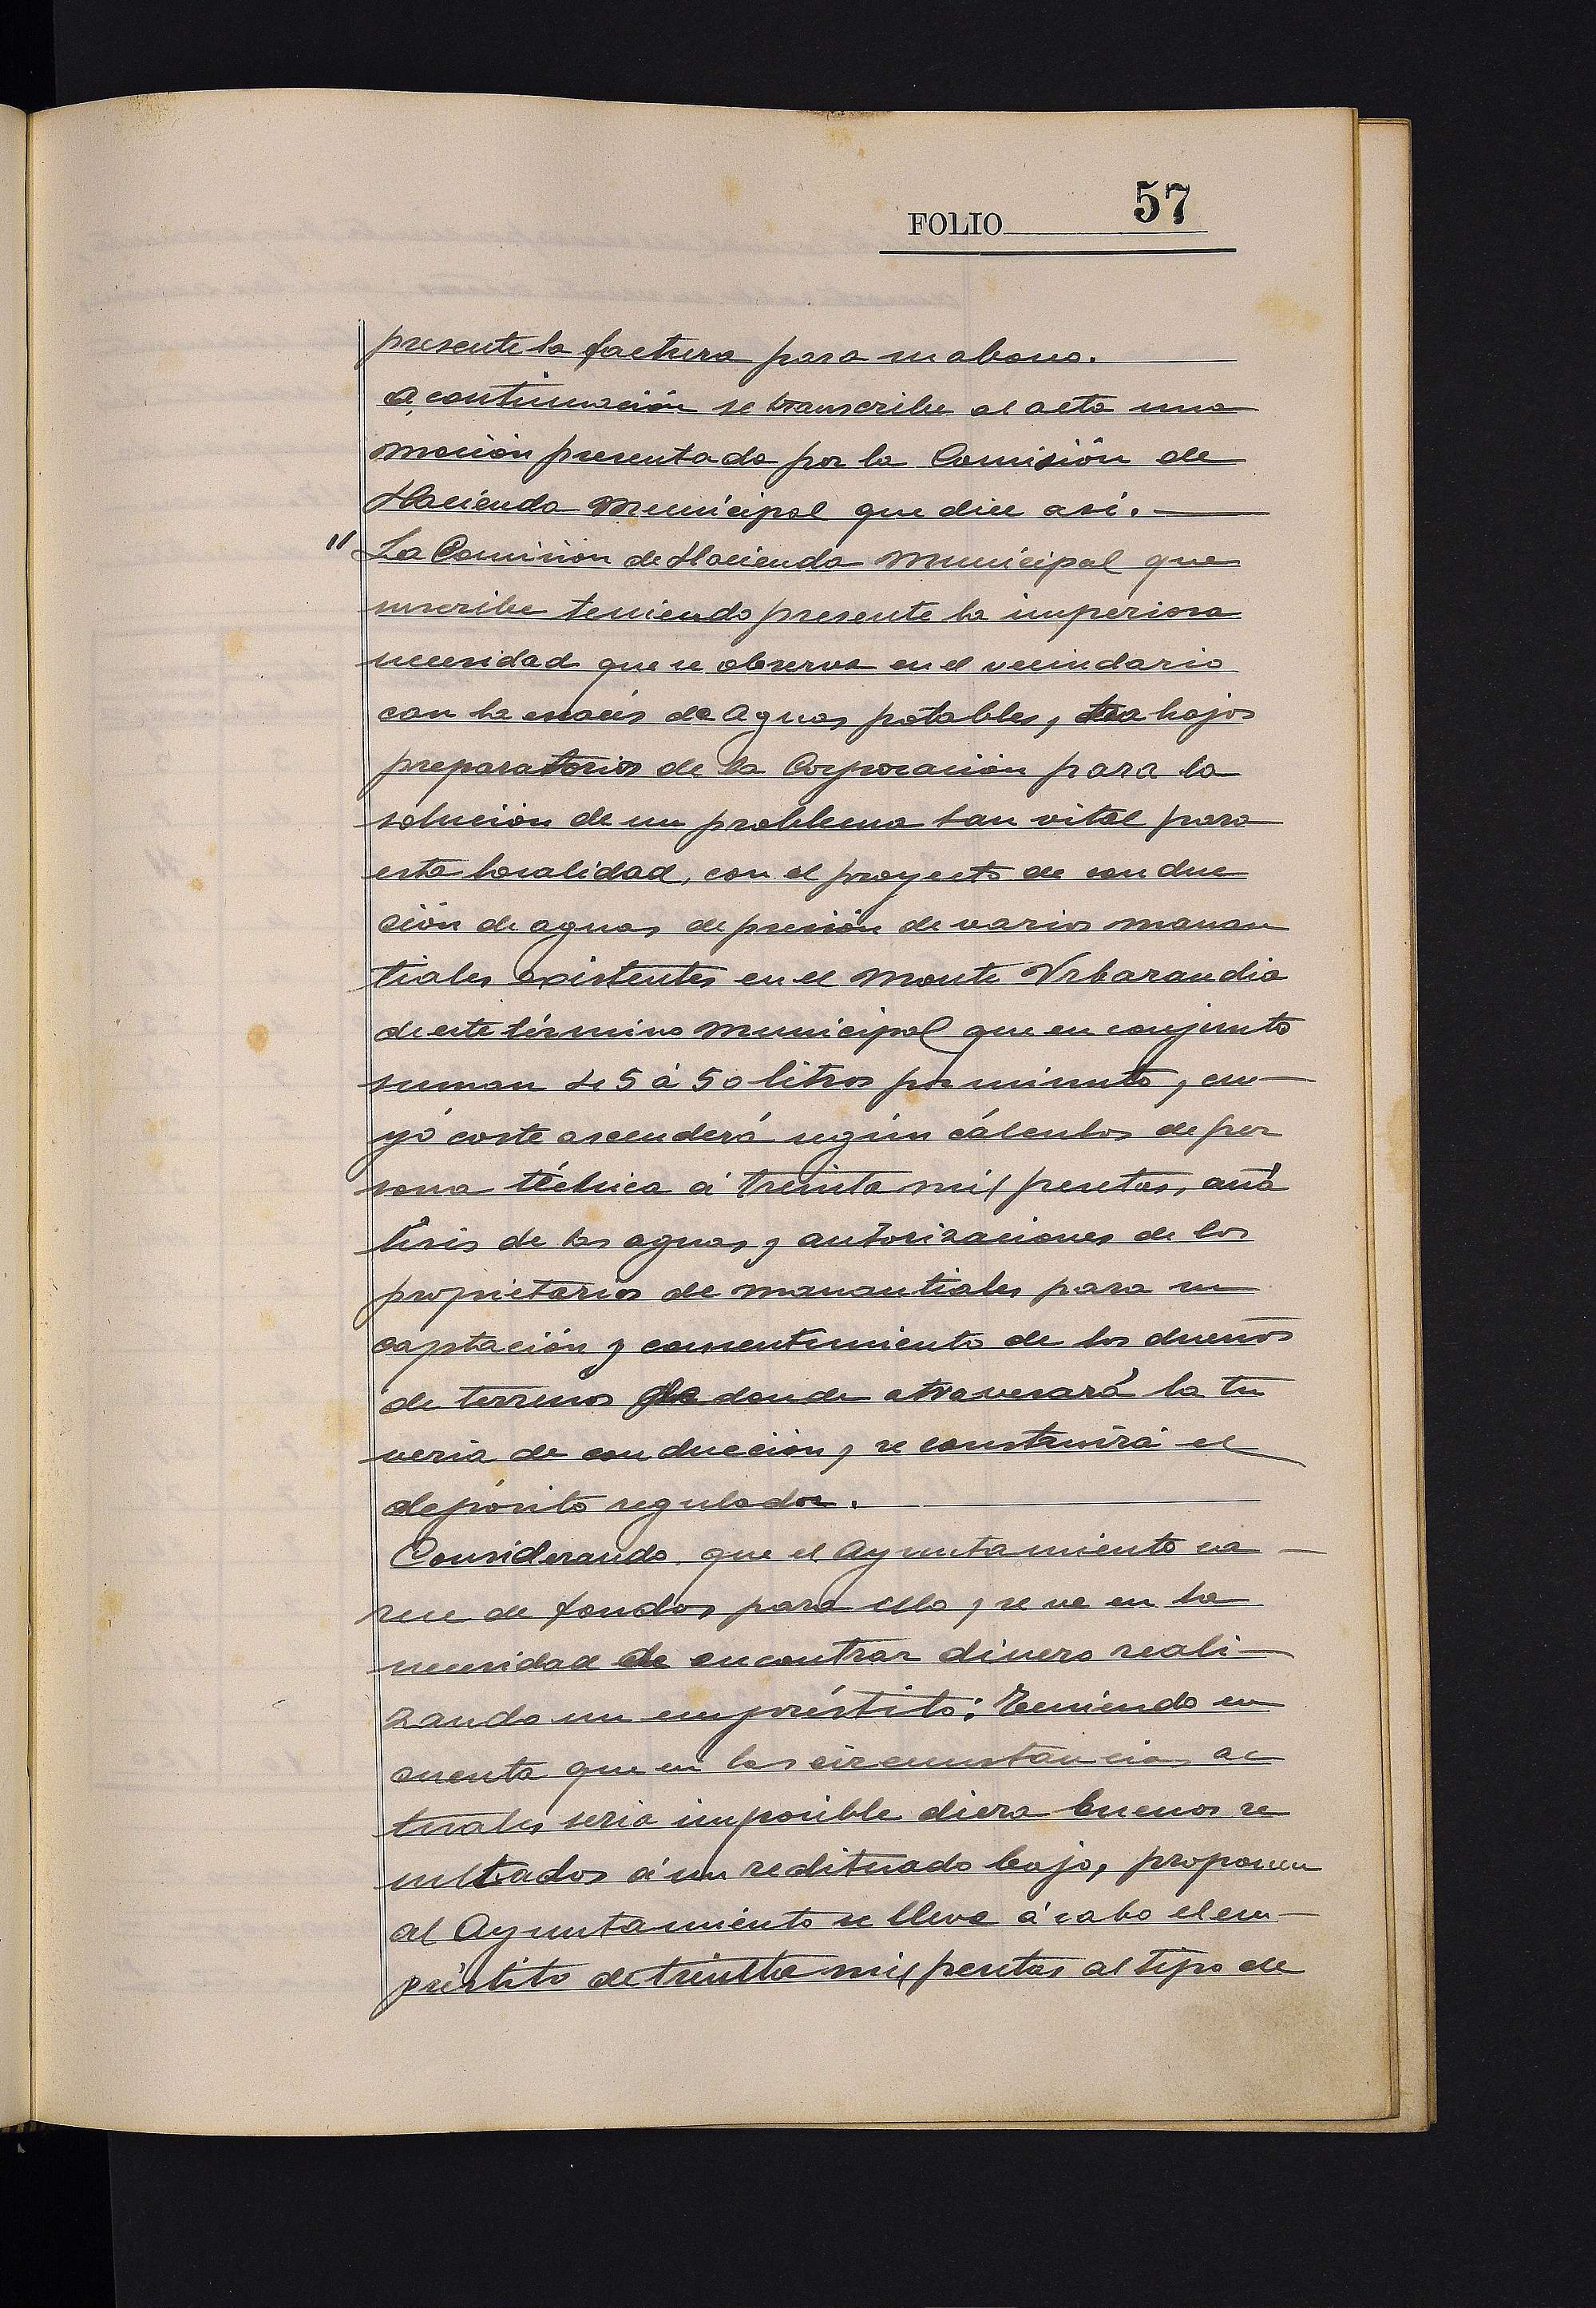 FOLIO 57
presente la factura para su abono.
A continuación se transcribe al acta una
moción presentada por la Comisión de
Hacienda Municipal que dice así.
" La Comisión de Hacienda Municipal que
suscribe teniendo presente la imperiosa
necesidad que se observa en el vecindario
con la escasés de Aguas potables, trabajos
preparatorios de la Corporación para la
solución de un problema tan vital para
esta localidad, con el proyecto de conduc
ción de aguas de presión de varios manan
tiales existentes en el Monte Urbarandia
de este término Municipal que en conjunto
suman 45 á 50 litros por minuto, cu-
yo coste ascenderá según cálculos de per
sona técnica á treinta mil pesetas, aná
lisis de las aguas y autorizaciones de los
propietarios de manantiales para su
captación y consentimiento de los dueños
de terrenos donde atravesará la tu
veria de conducción y se construirá el
depósito regulador.
Considerando que el Ayuntamiento ca-
rece de fondos para ello y se ve en la
necesidad de encontrar dinero reali-
zando un empréstito: Teniendo en
cuenta que en las circunstancias ac
tuales seria imposible diera buenos re
sultados á un redituado bajo, proponen
al Ayuntamiento se lleve á cabo el em-
préstito de treinta mil pesetas al tipo de